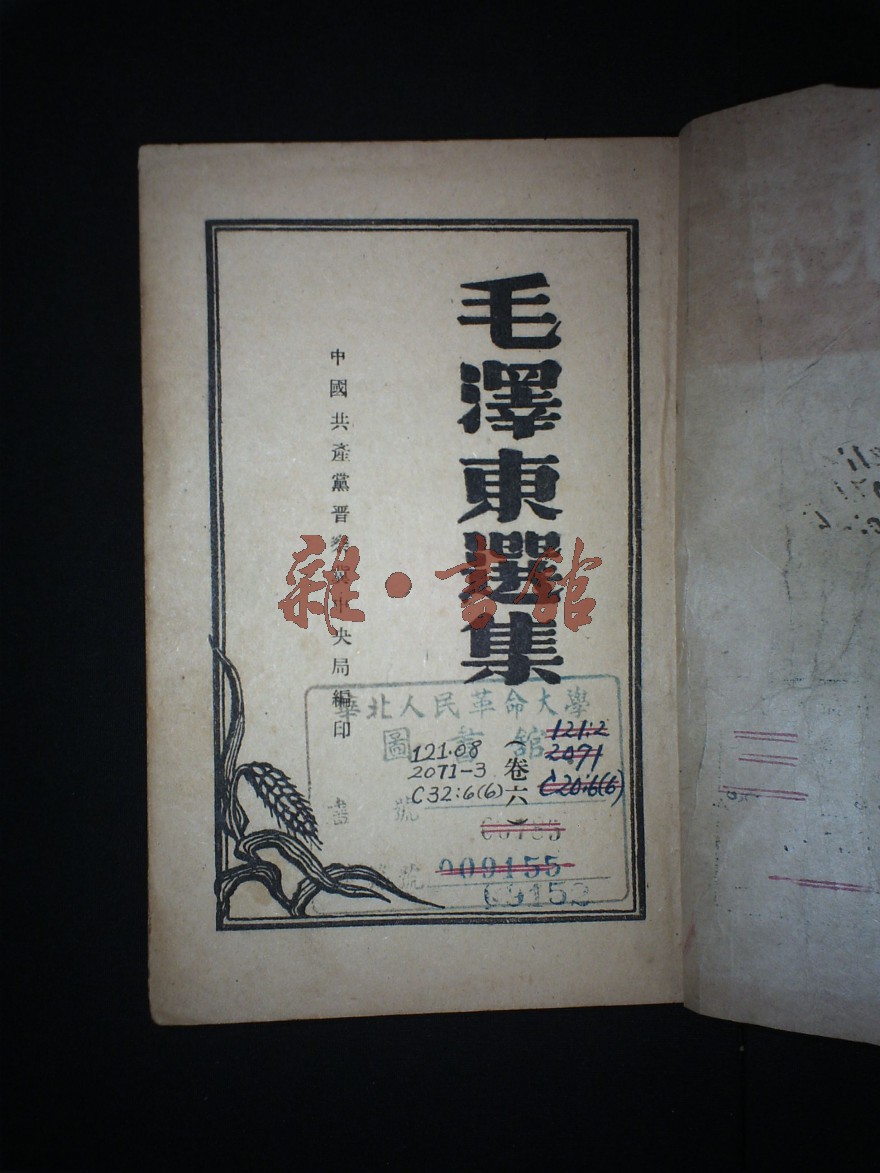 毛澤東選集
（卷六）
中國共產黨晉察冀中央局編印
雜·書館
華北人民革命大學
圖書館
121·08
2071-3
C32:6(6)
121:2
2071
C20:6(6)
書號
號
009155
09152